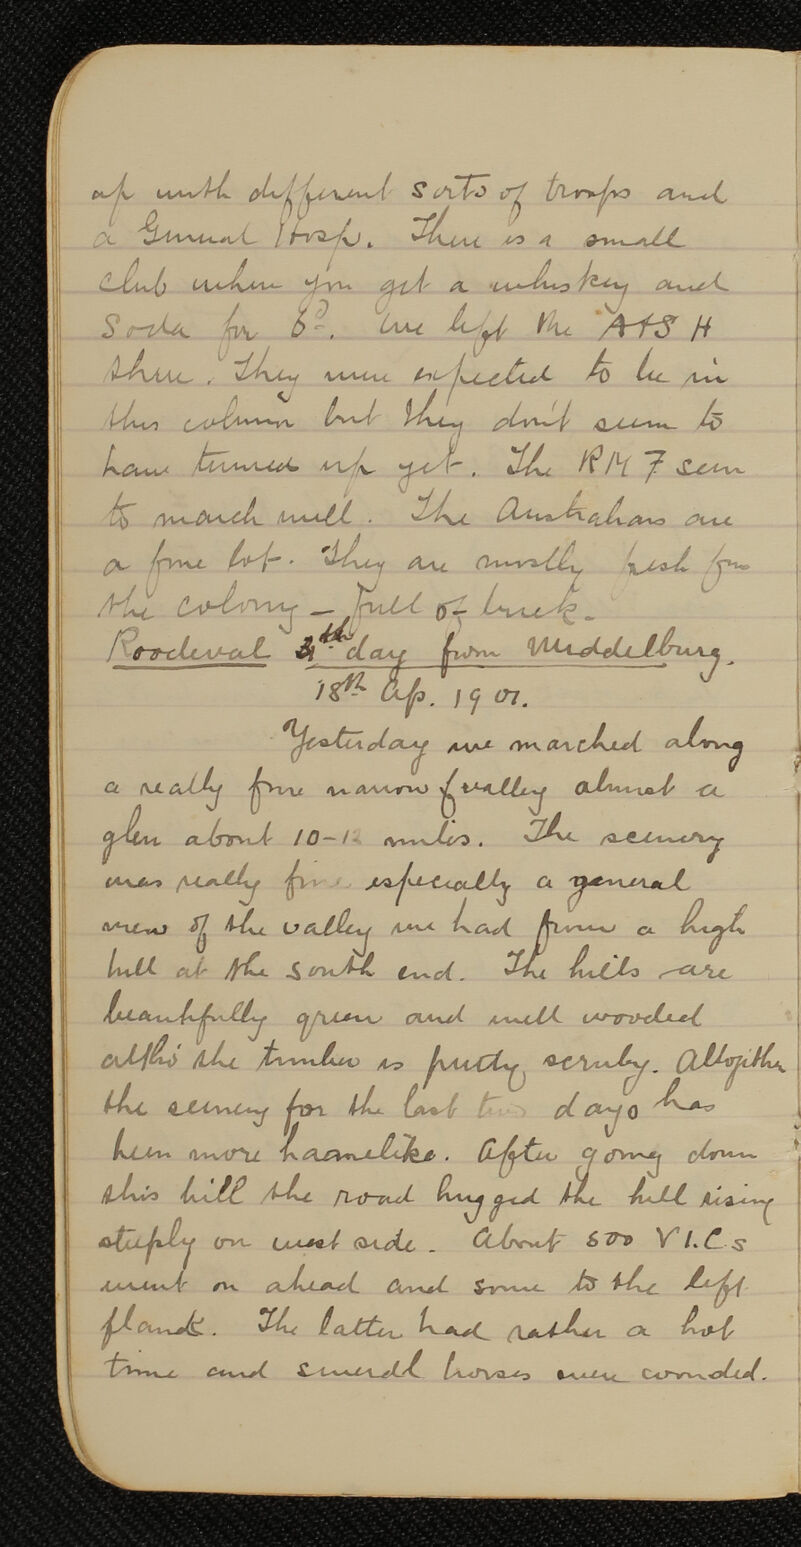 up with different sorts of troops and
a General Hosp. There is a small
club where you get a whiskey and
Soda for 6d. We left the A+S H
there. They were expected to be in
this column but they don't seem to
have turned up yet. The RMF seem
to march well. The Australians are
a fine lot. They are mostly fresh from
the colony - full of buck.
Roodeval 4th day from Middelburg.
18th Ap. 1901.
Yesterday we marched along
a really fine narrow valley almost a
glen about 10-12 miles. The scenery
was really fine especially a general
view of the valley we had from a high
hill at the south end. The hills are
beautifully green and well wooded
altho' the timber is pretty scruby. Altogether
the scenery for the last two days has
been more haamelike. After going down
this hill the road hugged the hill rising
steeply on west side. About 500 V.I.C.s
went on ahead and some to the left
flank. The latter had rather a hot
time and several horses were wounded.